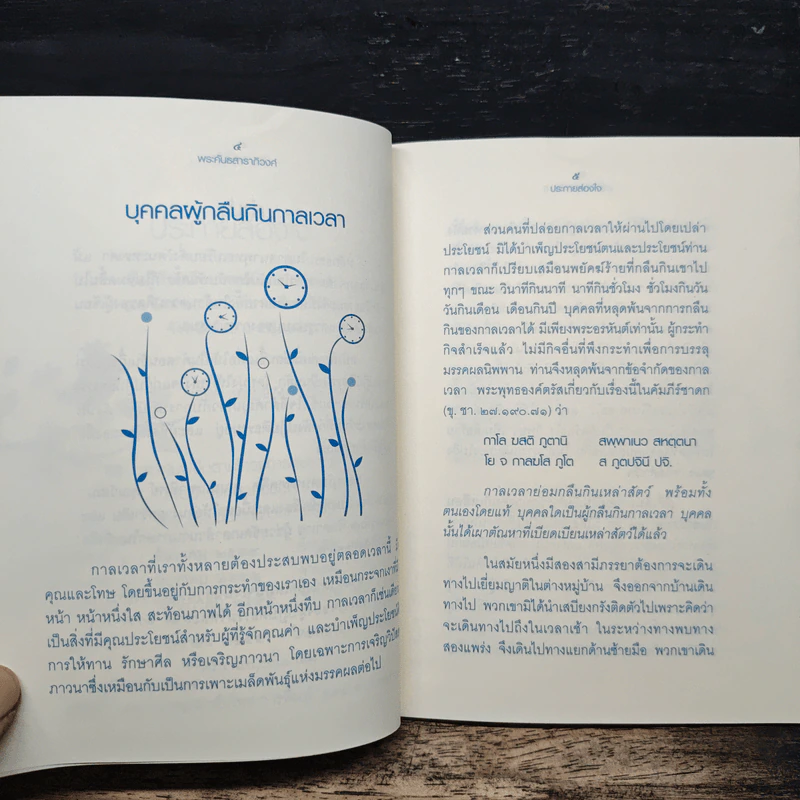 ๔
พระคันธสาราภิวงศ์
บุคคลผู้กลืนกินกาลเวลา
กาลเวลาที่เราทั้งหลายต้องประสบพบอยู่ตลอดเวลานี้
คุณและโทษ โดยขึ้นอยู่กับการกระทำของเราเอง เหมือนกระจกเงาที่มี
หน้า หน้าหนึ่งใส สะท้อนภาพได้ อีกหน้าหนึ่งทึบ กาลเวลาก็เช่นเดียวกัน
เป็นสิ่งที่มีคุณประโยชน์สำหรับผู้ที่รู้จักคุณค่า และบำเพ็ญประโยชน์
การให้ทาน รักษาศีล หรือเจริญภาวนา โดยเฉพาะการเจริญวิปัสสนา
ภาวนาซึ่งเหมือนกับเป็นการเพาะเมล็ดพันธุ์แห่งมรรคผลต่อไป
๕
ประกายส่องใจ
ส่วนคนที่ปล่อยกาลเวลาให้ผ่านไปโดยเปล่า
ประโยชน์ มิได้บำเพ็ญประโยชน์ตนและประโยชน์ท่าน
กาลเวลาก็เปรียบเสมือนพยัคฆ์ร้ายที่กลืนกินเขาไป
ทุกๆ ขณะ วินาทีกินนาที นาทีกินชั่วโมง ชั่วโมงกินวัน
วันกินเดือน เดือนกินปี บุคคลที่หลุดพ้นจากการกลืน
กินของกาลเวลาได้ มีเพียงพระอรหันต์เท่านั้น ผู้กระทำ
กิจสำเร็จแล้ว ไม่มีกิจอื่นที่พึงกระทำเพื่อการบรรลุ
มรรคผลนิพพาน ท่านจึงหลุดพ้นจากข้อจำกัดของกาล
เวลา พระพุทธองค์ตรัสเกี่ยวกับเรื่องนี้ในคัมภีร์ชาดก
(ขุ. ชา. ๒๗.๑๙๐.๗๑) ว่า
กาโล ฆสติ ภูตานิ สพฺพาเนว สหตฺตนา
โย จ กาลฆโส ภูโต ส ภูตปจินึ ปจิ.
กาลเวลาย่อมกลืนกินเหล่าสัตว์ พร้อมทั้ง
ตนเองโดยแท้ บุคคลใดเป็นผู้กลืนกินกาลเวลา บุคคล
นั้นได้เผาตัณหาที่เบียดเบียนเหล่าสัตว์ได้แล้ว
ในสมัยหนึ่งมีสองสามีภรรยาต้องการจะเดิน
ทางไปเยี่ยมญาติในต่างหมู่บ้าน จึงออกจากบ้านเดิน
ทางไป พวกเขามิได้นำเสบียงกรังติดตัวไปเพราะคิดว่า
จะเดินทางไปถึงในเวลาเช้า ในระหว่างทางพบทาง
สองแพร่ง จึงเดินไปทางแยกด้านซ้ายมือ พวกเขาเดิน